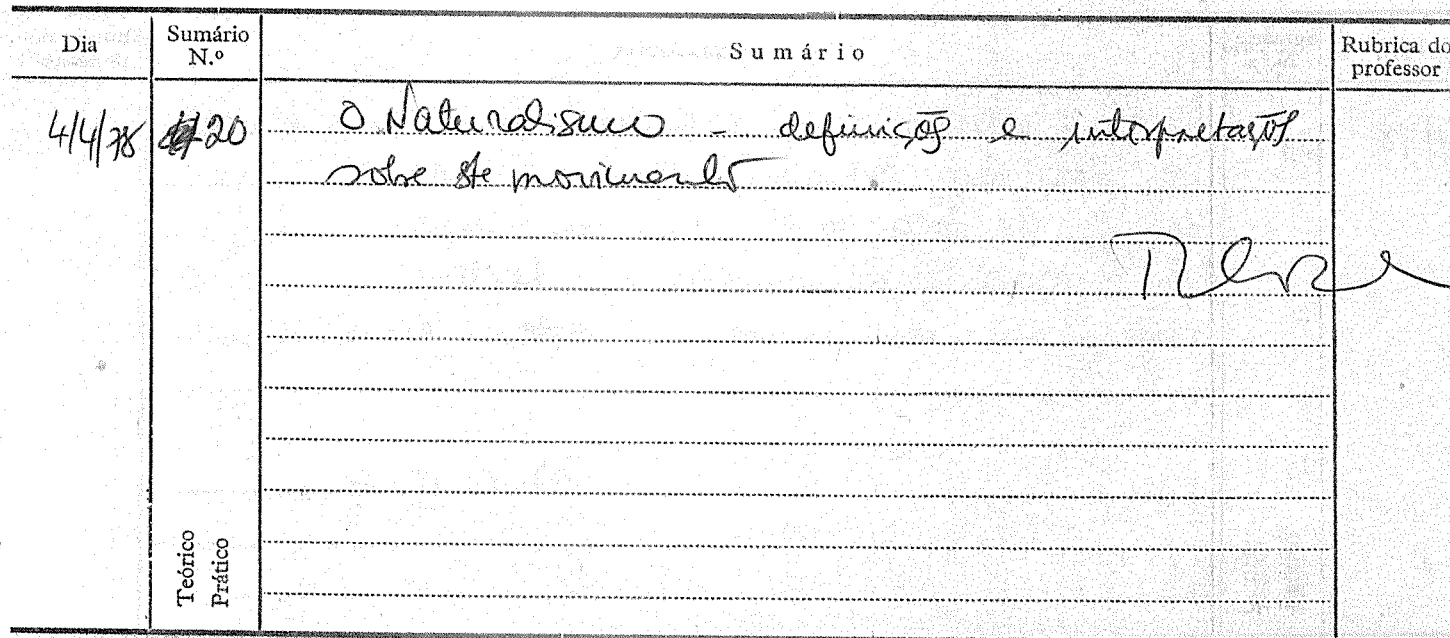 Dia Sumário N.º Sumário Rubrica do professor
4/4/78 20 O Naturalismo - definições e interpretações
sobre este movimento
Teórico
Prático